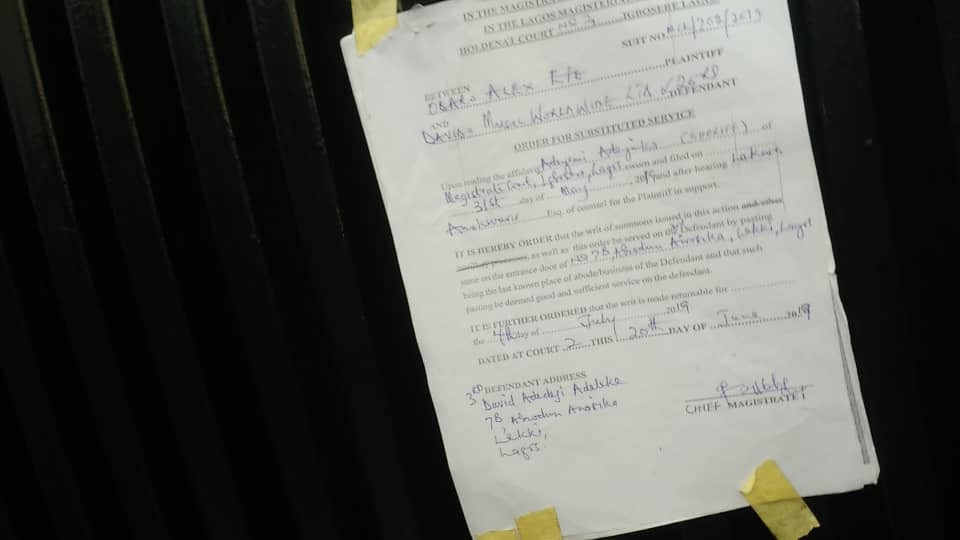 IN THE MAGISTRA
IN THE LAGOS MAGISTERIA
HOLDEN AT COURT NO 3 IGBOSERE LAGOS
SUIT NO. MCL/208/2019
BETWEEN
ALEX PLAINTIFF
AND
DAVIDO MUSIC WORLDWIDE LTD & 2 ORS DEFENDANT
ORDER FOR SUBSTITUTED SERVICE
Upon reading the affidavit Adeyemi, (SHERIFF) of
Magistrate Court, Igbosere, Lagos sworn and filed on
31st day of May, 2019 and after hearing
Esq. of counsel for the Plaintiff in support.
IT IS HEREBY ORDER that the writ of summons issued in this action and other
processes, as well as this order be served on the Defendant by pasting
same on the entrance door of NO 7B, , Lekki, Lagos
being the last known place of abode/business of the Defendant and that such
pasting be deemed good and sufficient service on the defendant.
IT IS FURTHER ORDERED that the writ is made returnable for ..................
the 4th day of July 2019
DATED AT COURT 2 THIS 20th DAY OF June 2019
3RD DEFENDANT ADDRESS
David Adedeji Adeleke
7B
Lekki,
Lagos.
CHIEF MAGISTRATE I